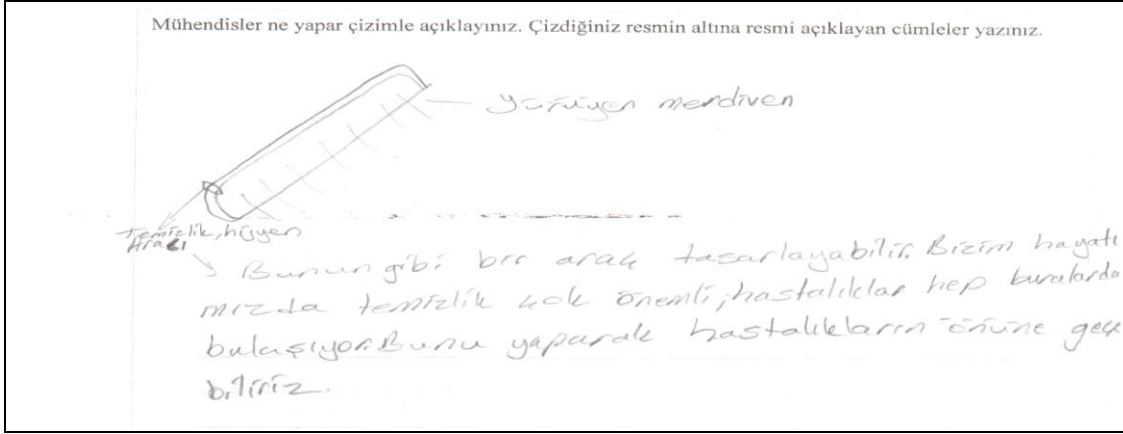 Mühendisler ne yapar çizimle açıklayınız. Çizdiğiniz resmin altına resmi açıklayan cümleler yazınız.
yürüyen merdiven
Temizlik, hijyen
Aracı
Bunun gibi bir araç tasarlayabilir. Bizim hayatı
mızda temizlik çok önemli, hastalıklar hep buralarda
bulaşıyor. Bunu yaparak hastalıkların önüne geçe
biliriz.